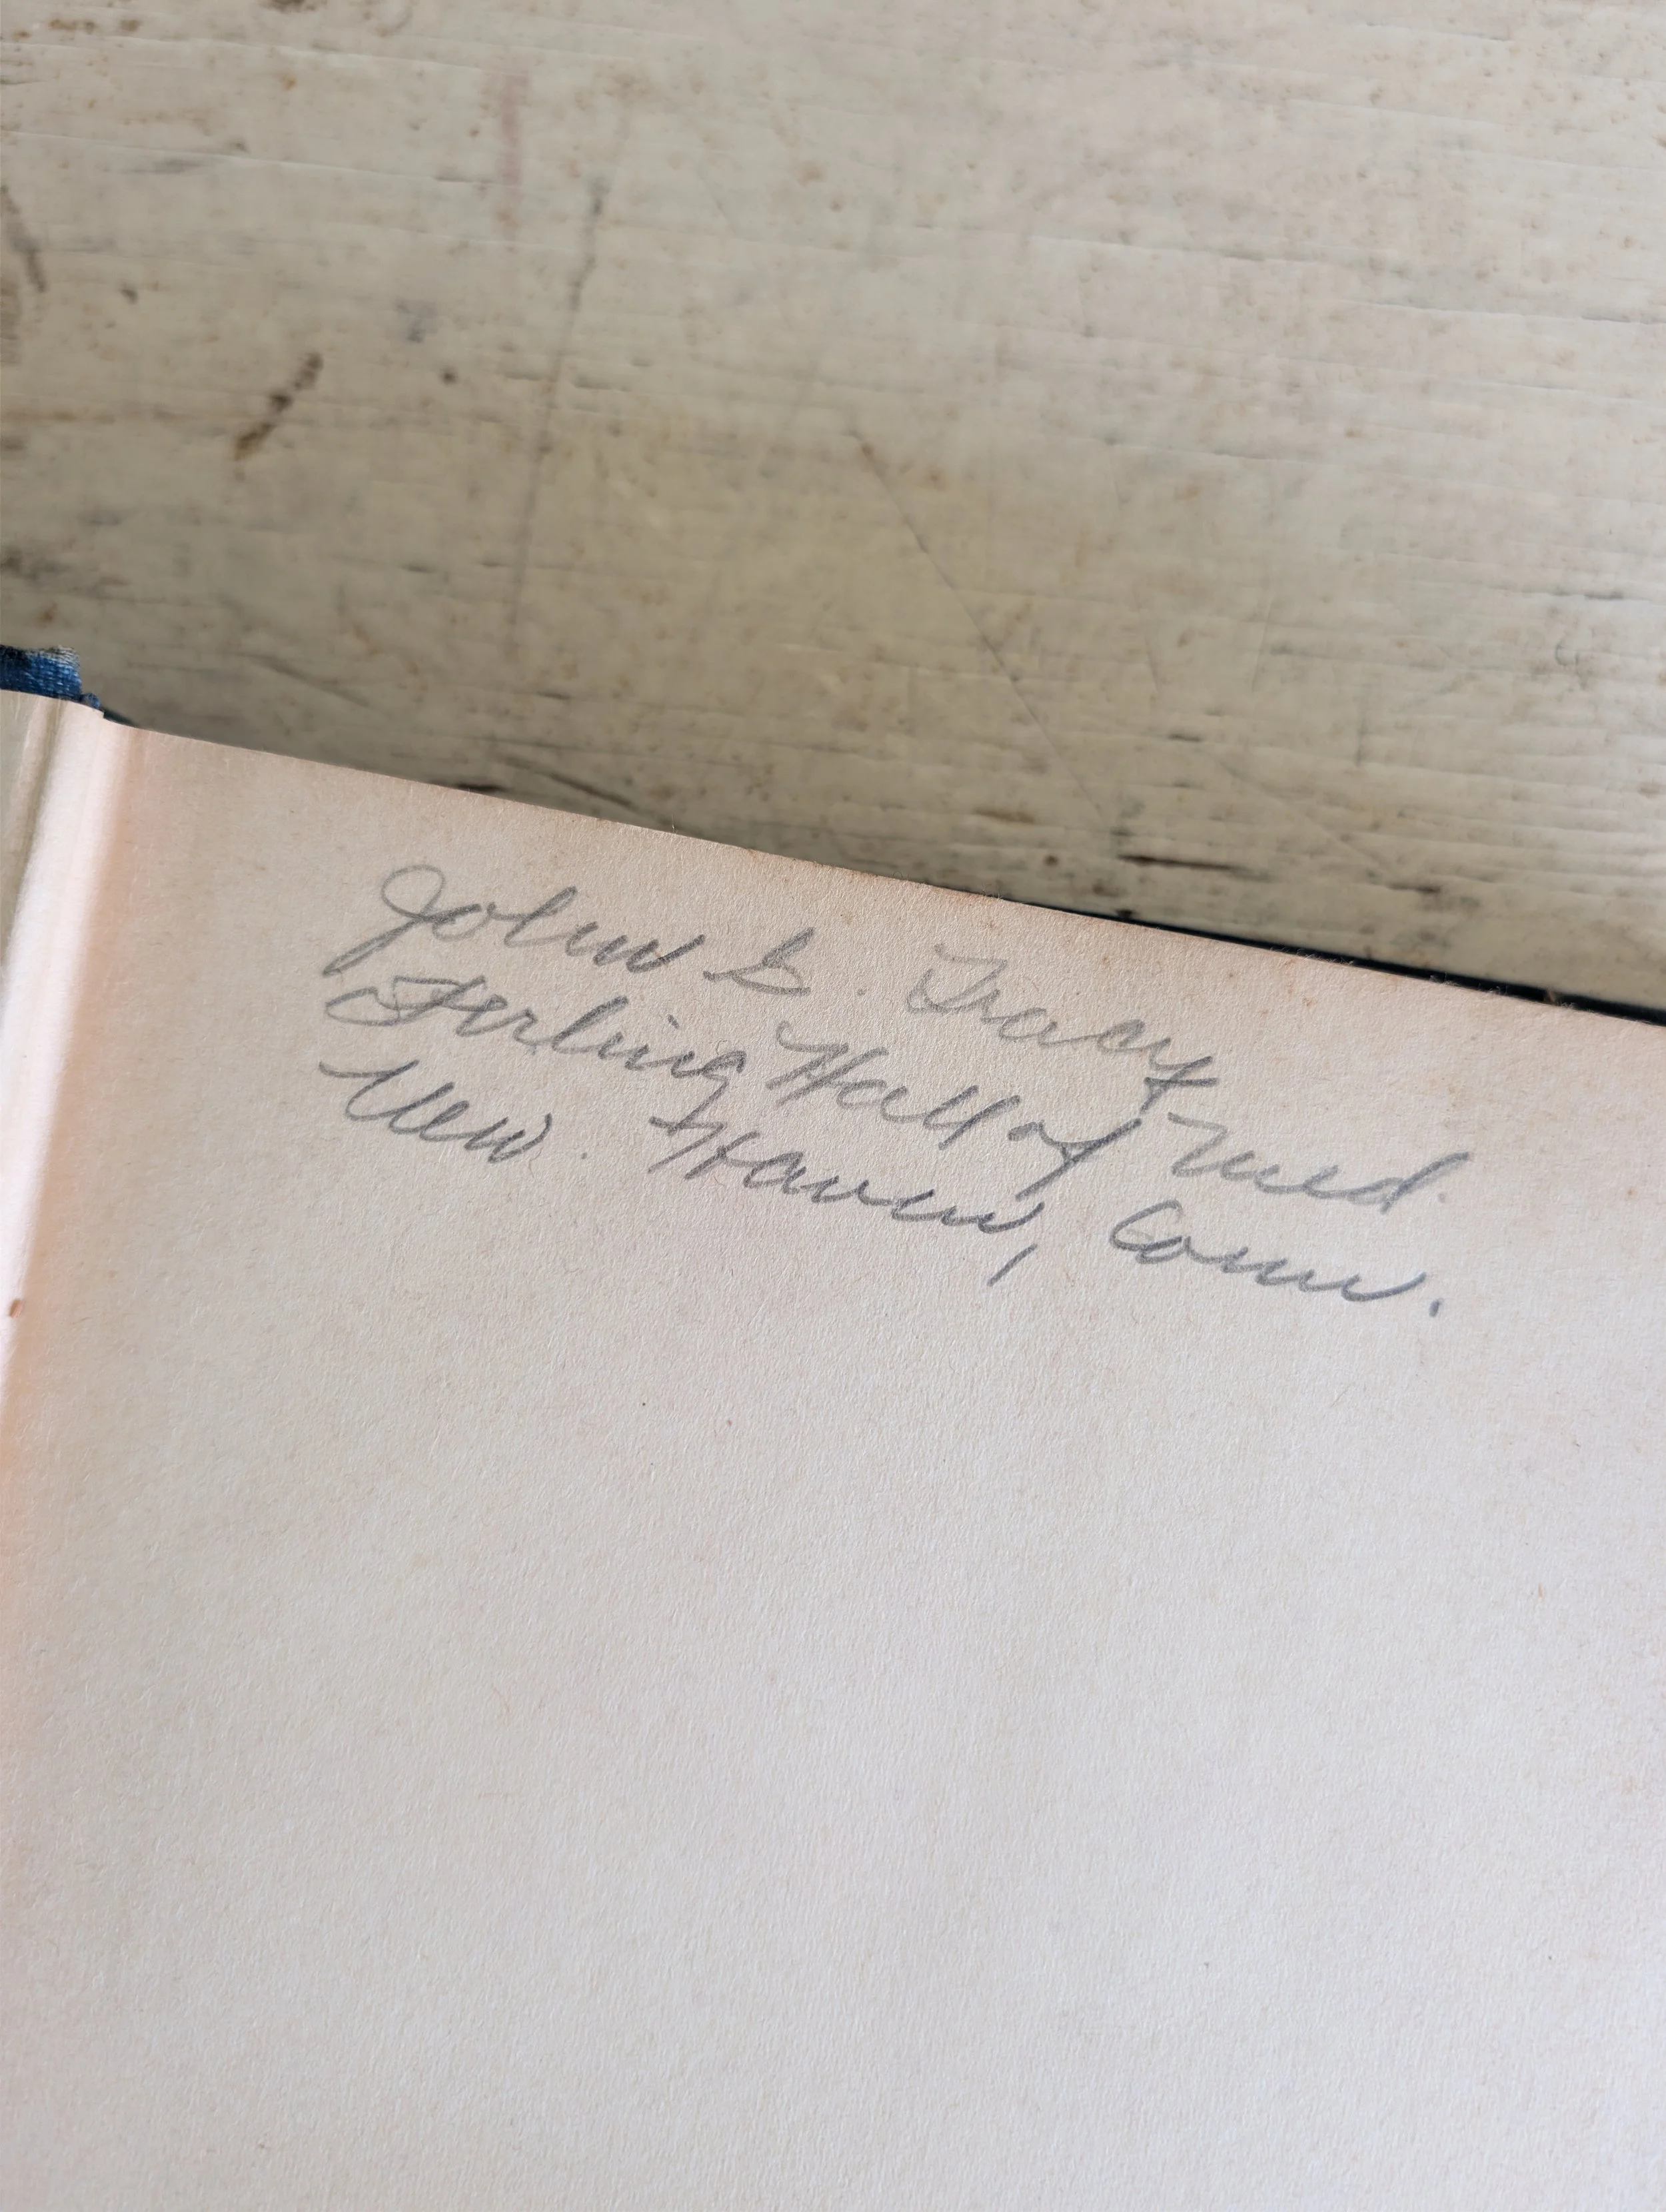 John G. Tracy
Sterling Hall of Med.
New Haven, Conn.